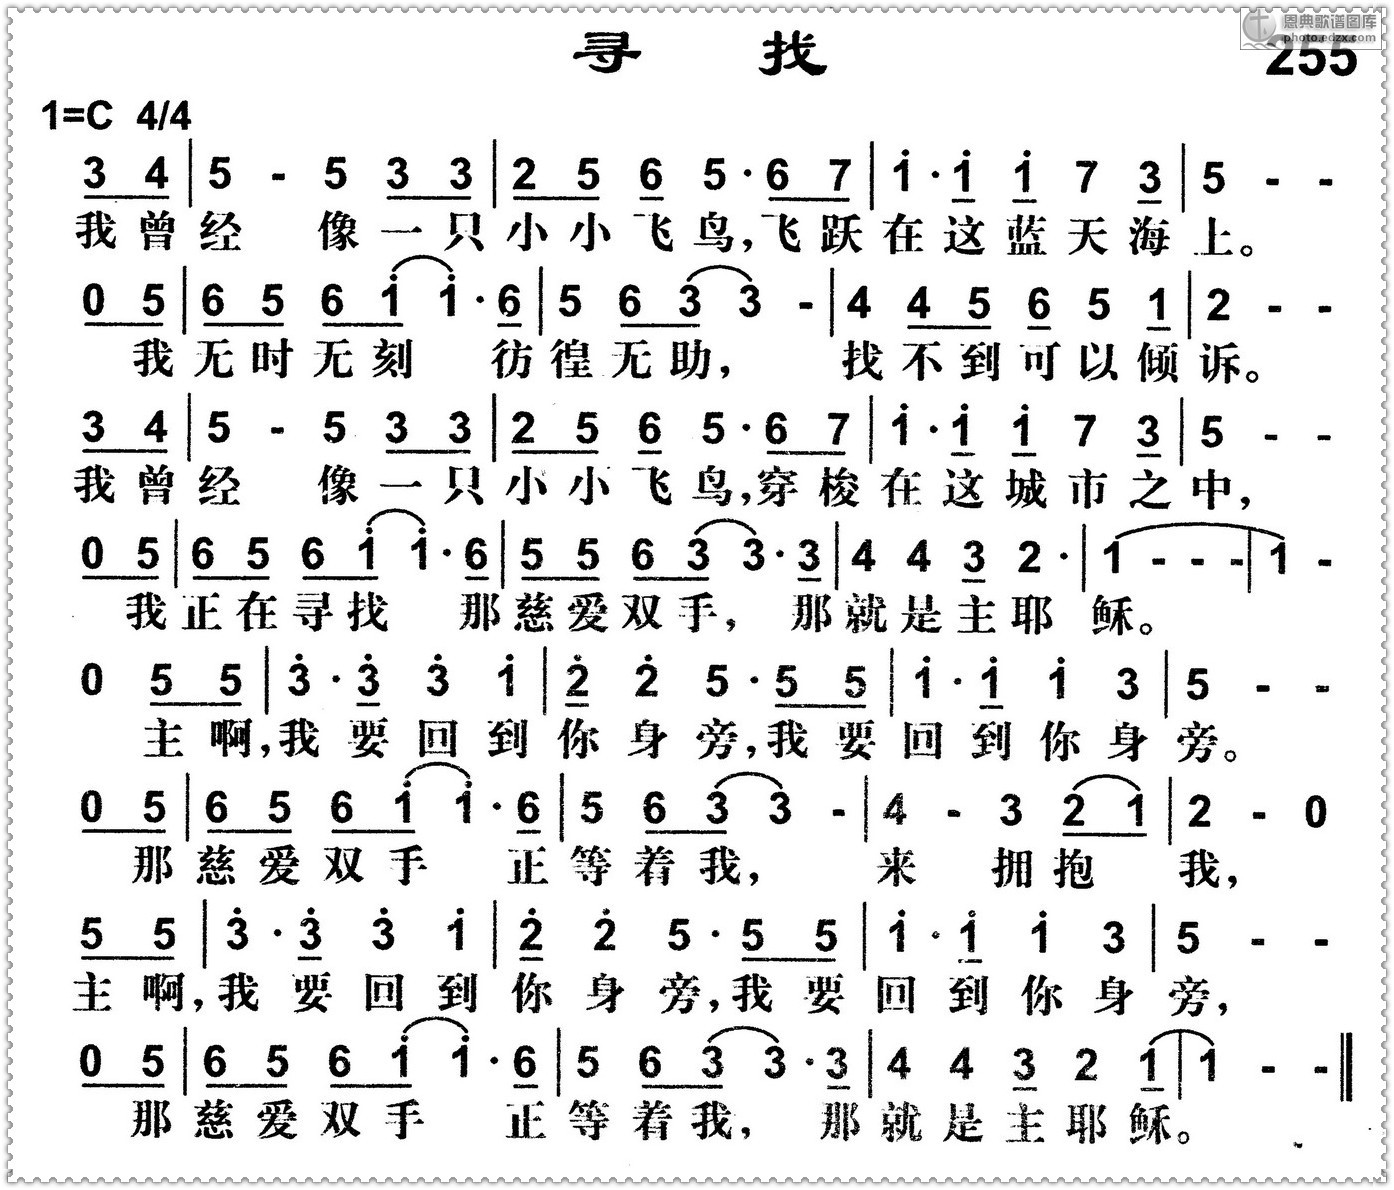 恩典歌谱图库
photo.edzx.com
寻 找
255
1=C 4/4
3 4 | 5 - 5 3 3 | 2 5 6 5 · 6 7 | i · i i 7 3 | 5 - -
我曾经 像一只小小飞鸟,飞跃在这蓝天海上。
0 5 | 6 5 6 i i · 6 | 5 6 3 3 - | 4 4 5 6 5 1 | 2 - -
我无时无刻 彷徨无助, 找不到可以倾诉。
3 4 | 5 - 5 3 3 | 2 5 6 5 · 6 7 | i · i i 7 3 | 5 - -
我曾经 像一只小小飞鸟,穿梭在这城市之中,
0 5 | 6 5 6 i i · 6 | 5 5 6 3 3 · 3 | 4 4 3 2 · | 1 - - - | 1 -
我正在寻找 那慈爱双手, 那就是主耶 稣。
0 5 5 | 3 · 3 3 i | 2 2 5 · 5 5 | i · i i 3 | 5 - -
主啊,我要回到你身旁,我要回到你身旁。
0 5 | 6 5 6 i i · 6 | 5 6 3 3 - | 4 - 3 2 1 | 2 - 0
那慈爱双手 正等着我, 来 拥抱 我,
5 5 | 3 · 3 3 i | 2 2 5 · 5 5 | i · i i 3 | 5 - -
主啊,我要回到你身旁,我要回到你身旁,
0 5 | 6 5 6 i i · 6 | 5 6 3 3 · 3 | 4 4 3 2 1 | 1 - - ‖
那慈爱双手 正等着我, 那就是主耶稣。